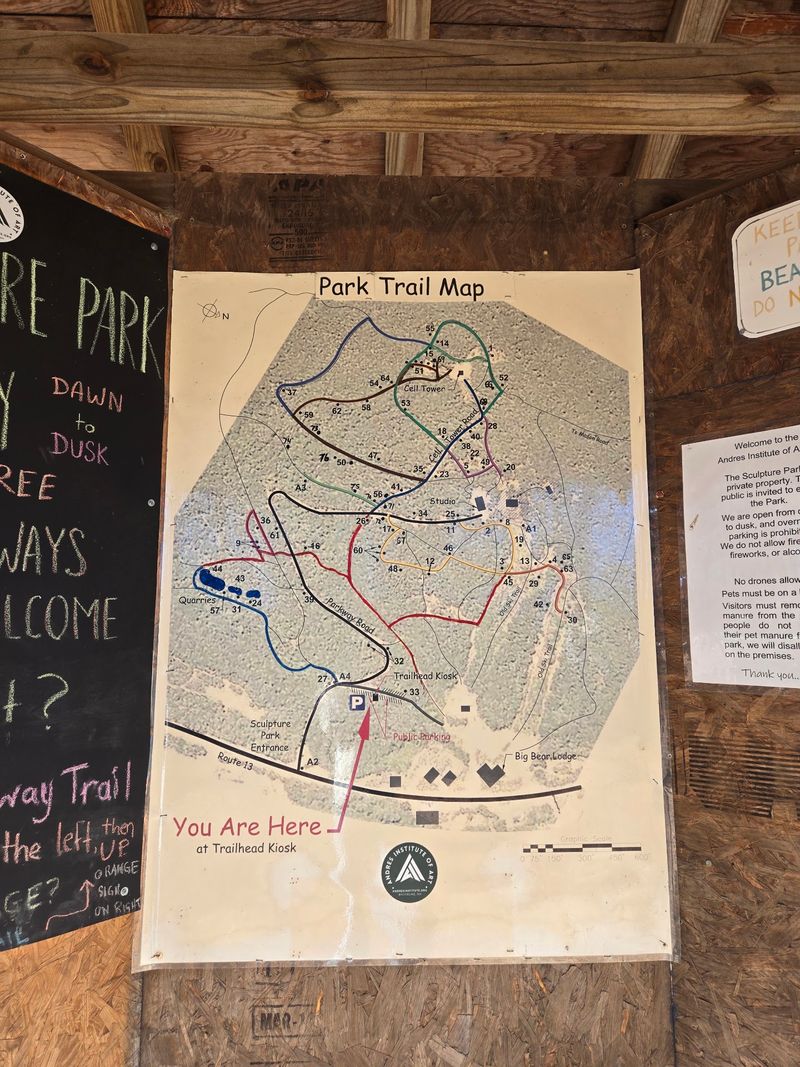 UTE OF ART
RE PARK
Y
DAWN
to
DUSK
REE
WAYS
LCOME
t ?
way Trail
the left, then
UP
ORANGE
SIGN
ON RIGHT
GE?
Park Trail Map
N
Cell Tower
Cell Tower Road
Studio
Quarries
Parkway Road
Old Ski Trail
Old Ski Trail
Trailhead Kiosk
P
Public Parking
Sculpture
Park
Entrance
Route 13
Big Bear Lodge
You Are Here
at Trailhead Kiosk
Graphic Scale
0 75' 150' 300' 450' 600'
ANDRES INSTITUTE OF ART
55
14
15
51
1
37
64
54
58
62
59
53
52
28
18
40
38
22
5
49
20
50
47
35
23
A3
56
41
34
25
11
2
8
A1
19
26
17
60
46
12
48
3
13
4
65
63
45
29
42
30
36
9
61
16
44
43
31
24
57
39
32
27
A4
33
A2
KEE
BEA
DO N
Welcome to the
Andres Institute of A
The Sculpture Par
private property. T
public is invited to e
the Park.
We are open from d
to dusk, and overn
parking is prohibi
We do not allow fire
fireworks, or alco
No drones allow
Pets must be on a l
Visitors must remo
manure from the
people do not
their pet manure f
park, we will disall
on the premises.
Thank you..
MAR-